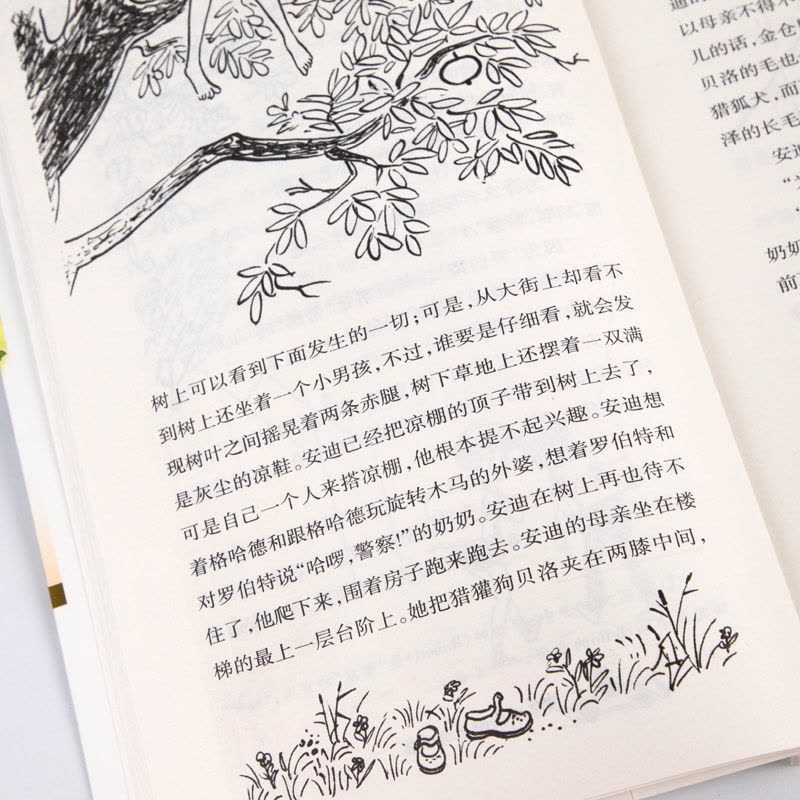 树上可以看到下面发生的一切；可是，从大街上却看不
到树上还坐着一个小男孩，不过，谁要是仔细看，就会发
现树叶之间摇晃着两条赤腿，树下草地上还摆着一双满
是灰尘的凉鞋。安迪已经把凉棚的顶子带到树上去了，
可是自己一个人来搭凉棚，他根本提不起兴趣。安迪想
着格哈德和跟格哈德玩旋转木马的外婆，想着罗伯特和
对罗伯特说“哈啰，警察！”的奶奶。安迪在树上再也待不
住了，他爬下来，围着房子跑来跑去。安迪的母亲坐在楼
梯的最上一层台阶上。她把猎獾狗贝洛夹在两膝中间，
以母亲不得不
儿的话，金仓
贝洛的毛也
猎狐犬，而
泽的长毛
安迪
奶奶
前